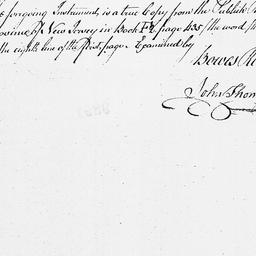 foregoing Instrument, is a true Copy from the Publick
of New Jersey in Book F2 page 435 / the word
the eighth line of the first page. Examined by
Bowes
John Thom